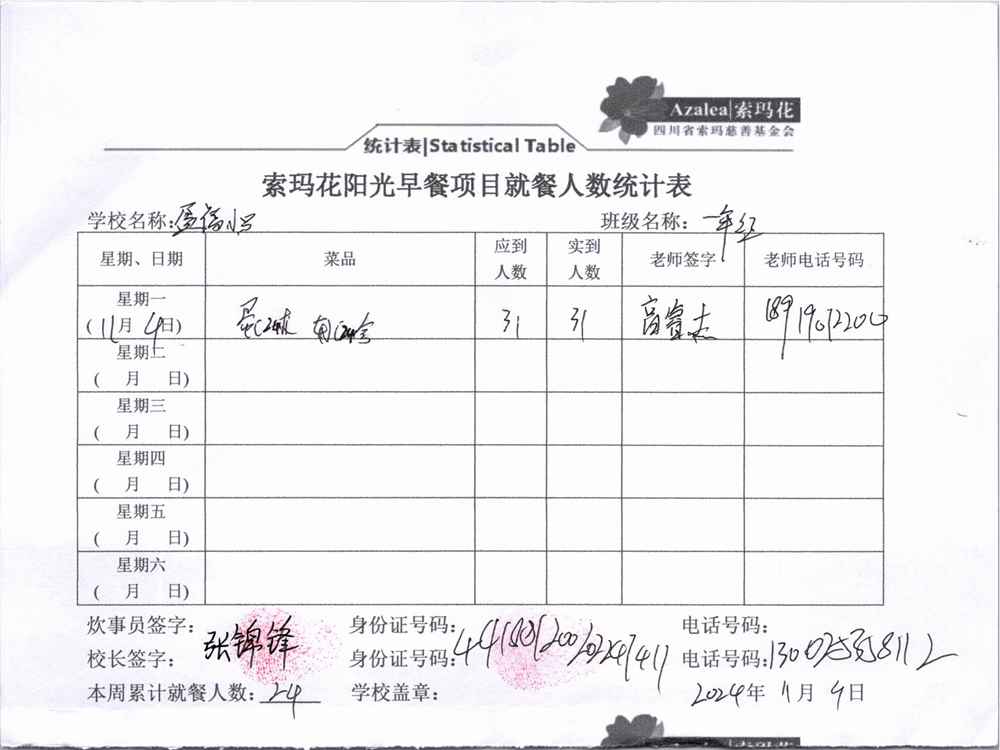 Azalea|索玛花
四川省索玛慈善基金会
统计表|Statistical Table
索玛花阳光早餐项目就餐人数统计表
学校名称: 班级名称: 一年级
星期、日期 菜品 应到人数 实到人数 老师签字 老师电话号码
星期一
(11月4日) 31 31 高睿杰 18919072200
星期二
( 月 日)
星期三
( 月 日)
星期四
( 月 日)
星期五
( 月 日)
星期六
( 月 日)
炊事员签字: 身份证号码: 电话号码:
校长签字: 张锦锋 身份证号码: 电话号码:
本周累计就餐人数: 24 学校盖章: 2024年 11月 4日